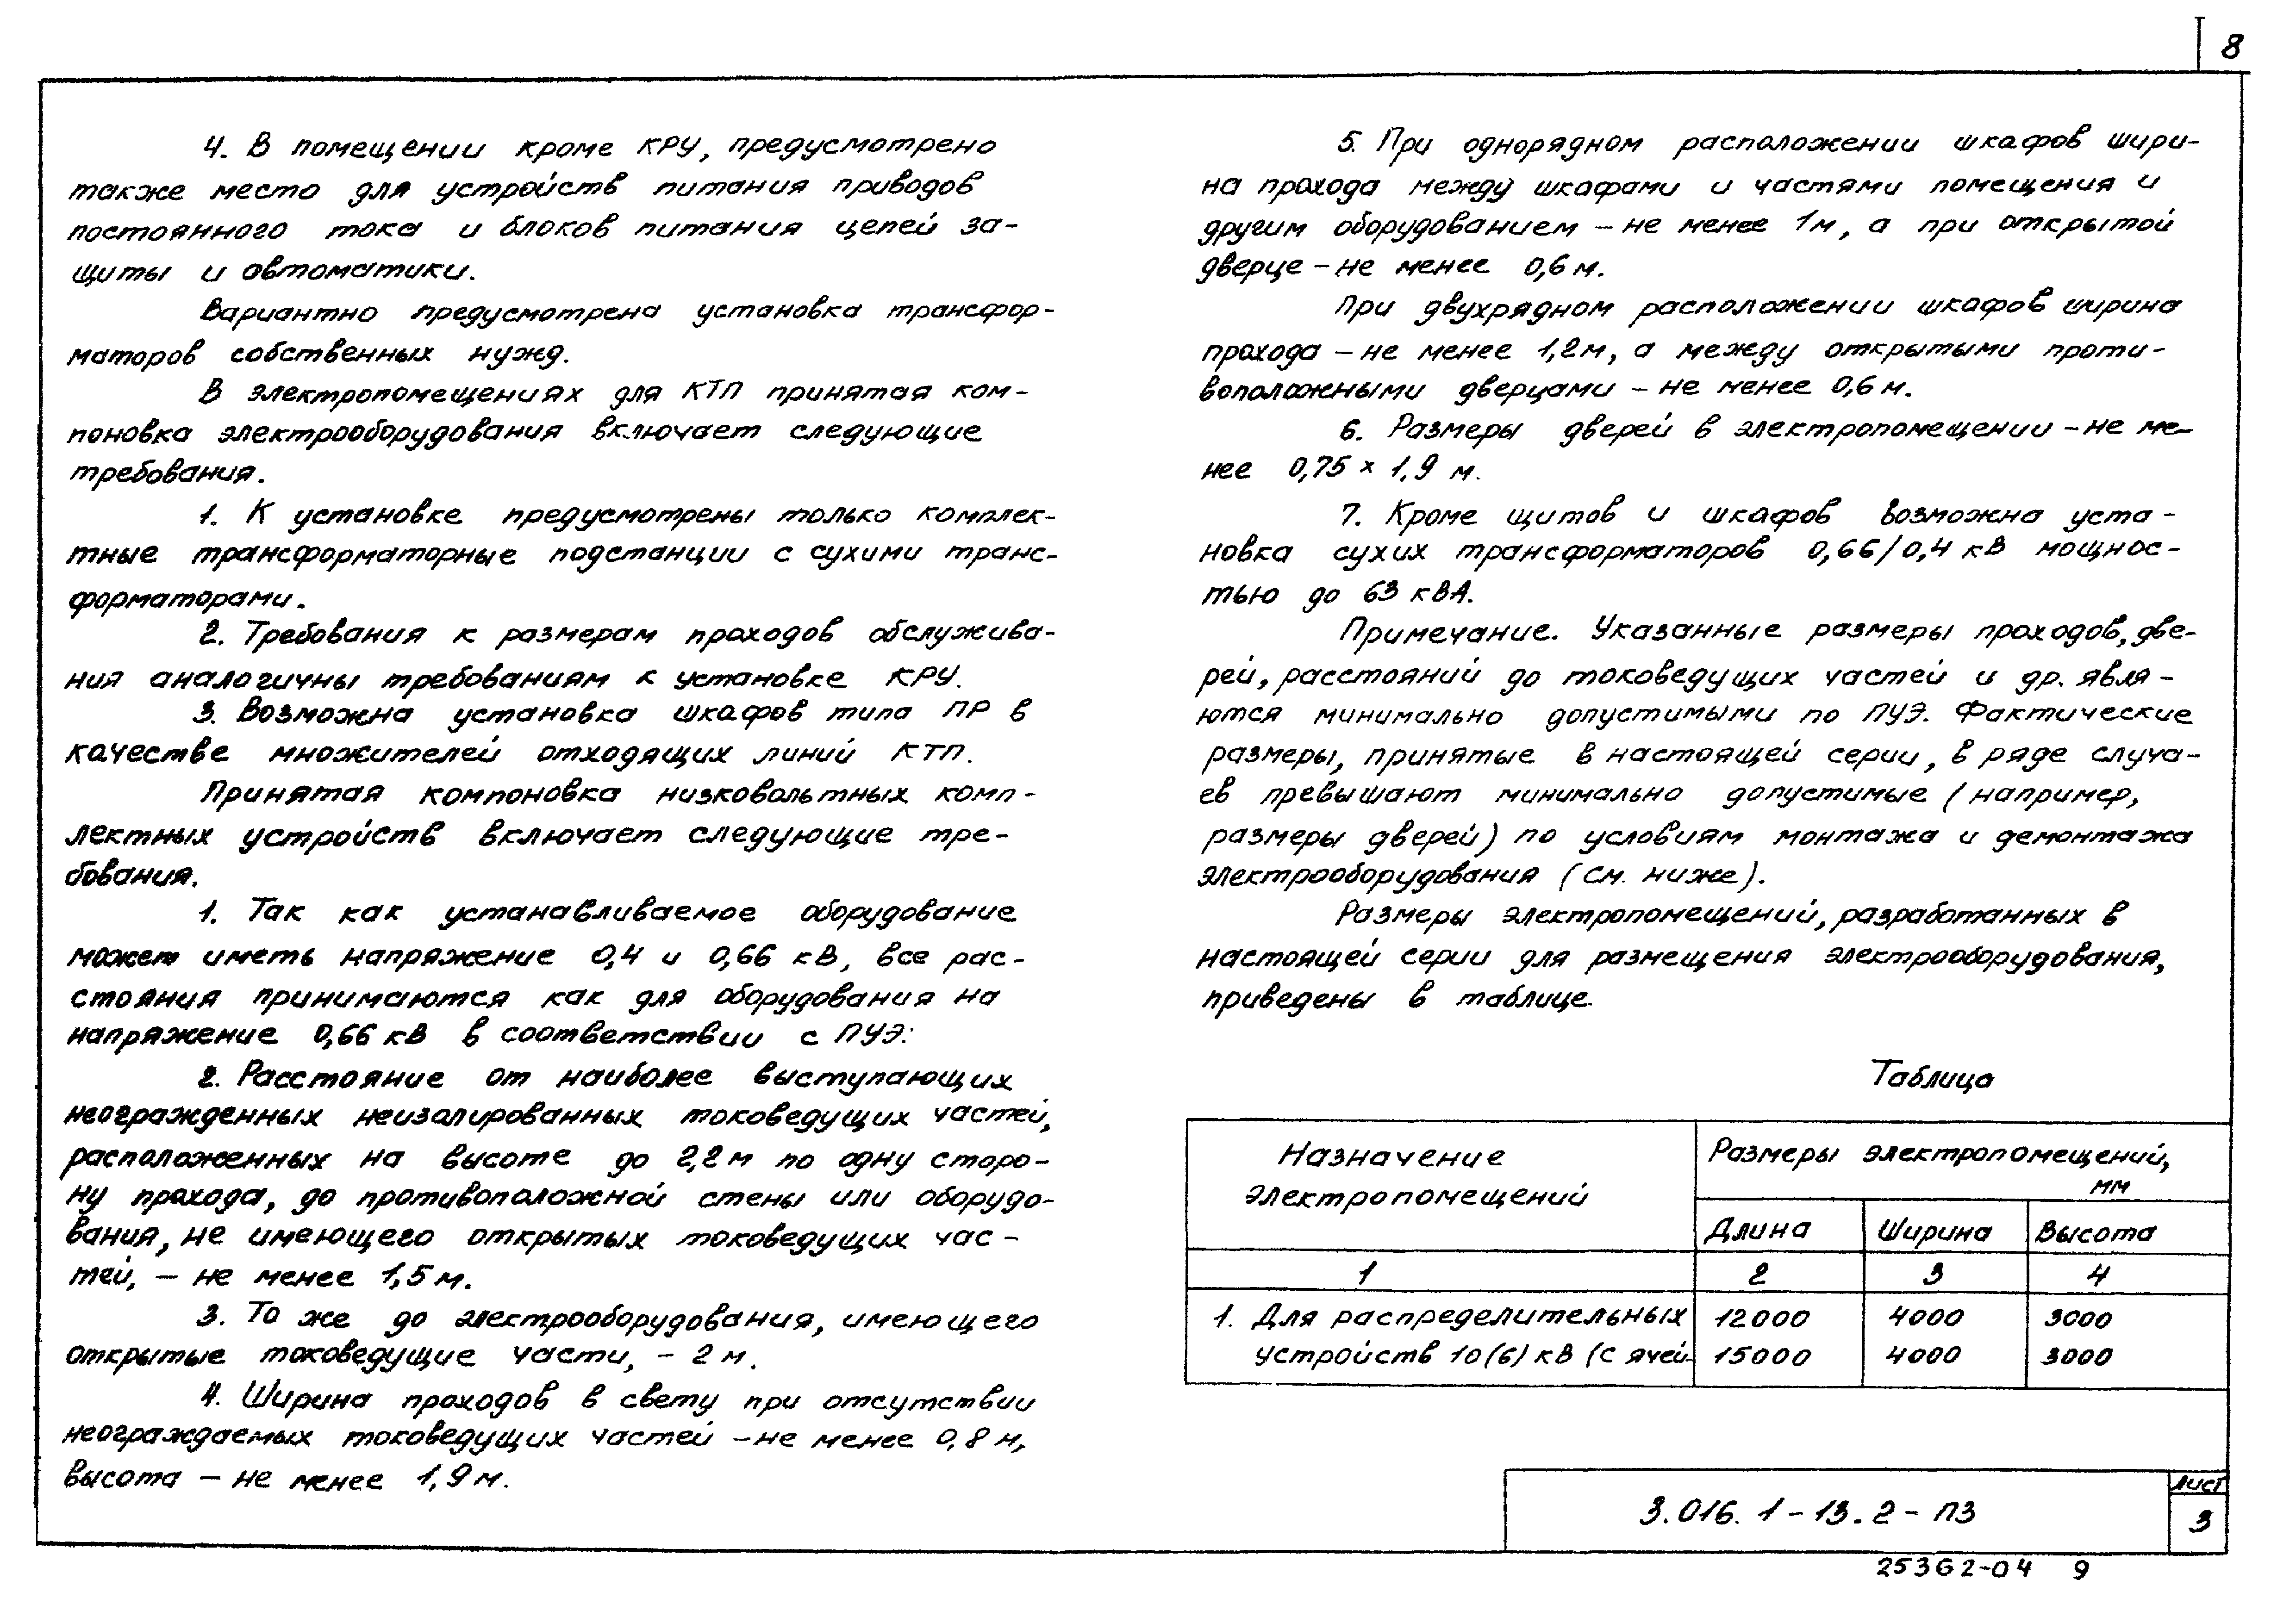 8
4. В помещении кроме КРУ, предусмотрено
также место для устройств питания приводов
постоянного тока и блоков питания цепей за-
щиты и автоматики.
Вариантно предусмотрена установка трансфор-
маторов собственных нужд.
В электропомещениях для КТП принятая ком-
поновка электрооборудования включает следующие
требования.
1. К установке предусмотрены только комплек-
тные трансформаторные подстанции с сухими транс-
форматорами.
2. Требования к размерам проходов обслужива-
ния аналогичны требованиям к установке КРУ.
3. Возможна установка шкафов типа ПР в
качестве множителей отходящих линий КТП.
Принятая компоновка низковольтных комп-
лектных устройств включает следующие тре-
бования.
1. Так как устанавливаемое оборудование
может иметь напряжение 0,4 и 0,66 кВ, все рас-
стояния принимаются как для оборудования на
напряжение 0,66 кВ в соответствии с ПУЭ:
2. Расстояние от наиболее выступающих
неогражденных неизолированных токоведущих частей,
расположенных на высоте до 2,2 м по одну сторо-
ну прохода, до противоположной стены или оборудо-
вания, не имеющего открытых токоведущих час-
тей, - не менее 1,5 м.
3. То же до электрооборудования, имеющего
открытые токоведущие части, - 2 м.
4. Ширина проходов в свету при отсутствии
неограждаемых токоведущих частей - не менее 0,8 м,
высота - не менее 1,9 м.
5. При однорядном расположении шкафов шири-
на прохода между шкафами и частями помещения и
другим оборудованием - не менее 1 м, а при открытой
дверце - не менее 0,6 м.
При двухрядном расположении шкафов ширина
прохода - не менее 1,2 м, а между открытыми проти-
воположными дверцами - не менее 0,6 м.
6. Размеры дверей в электропомещении - не ме-
нее 0,75 x 1,9 м.
7. Кроме щитов и шкафов возможна уста-
новка сухих трансформаторов 0,66/0,4 кВ мощнос-
тью до 63 кВА.
Примечание. Указанные размеры проходов, две-
рей, расстояний до токоведущих частей и др. явля-
ются минимально допустимыми по ПУЭ. Фактические
размеры, принятые в настоящей серии, в ряде случа-
ев превышают минимально допустимые (например,
размеры дверей) по условиям монтажа и демонтажа
электрооборудования (см. ниже).
Размеры электропомещений, разработанных в
настоящей серии для размещения электрооборудования,
приведены в таблице.
Таблица
Назначение электропомещений
Размеры электропомещений, мм
Длина Ширина Высота
1 2 3 4
1. Для распределительных 12000 4000 3000
устройств 10(6) кВ (с ячей- 15000 4000 3000
3.016.1-13.2-ПЗ
Лист
3
25362-04 9